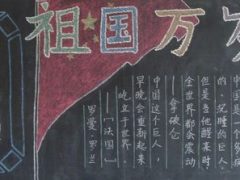 祖国万岁
中国是一个多
的、沉睡的巨人
但是当他醒来时
全世界都会震动
——拿破仑
中国这个巨人，
早晚会重新起来
屹立于世界。
——[法国]
罗曼·罗兰